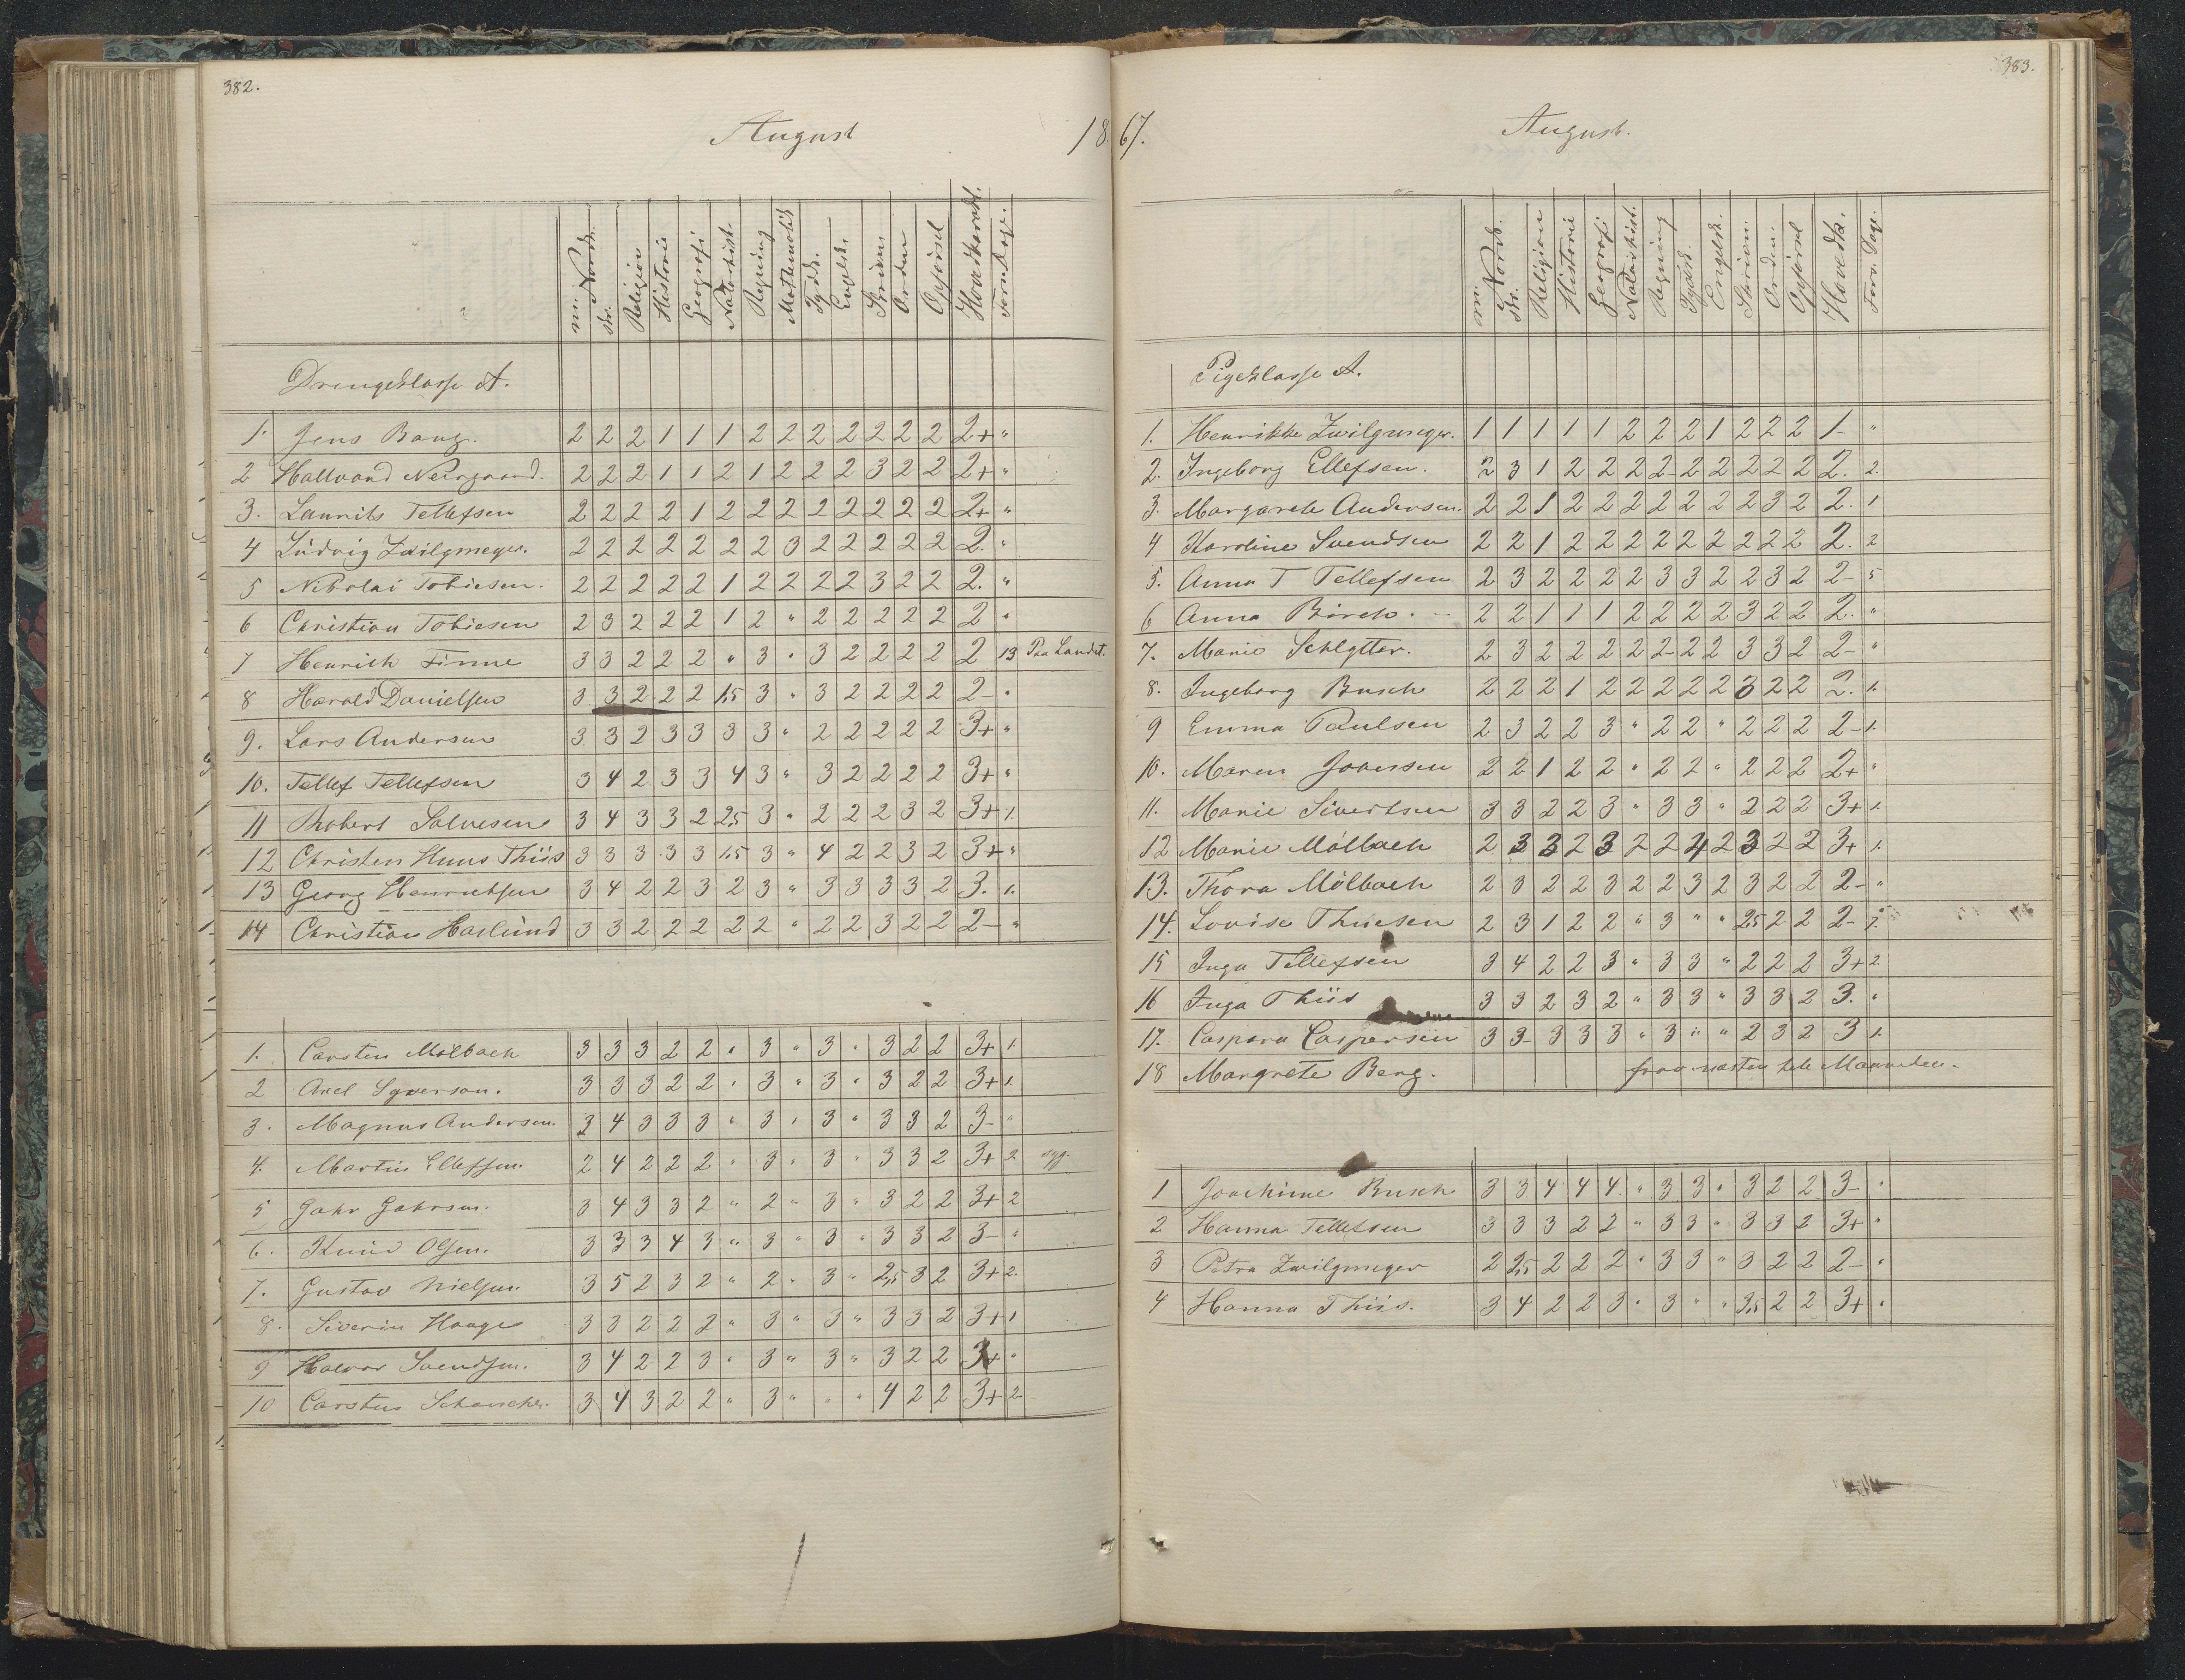 382.
August
18
mi. Norsk. skr. Religion Historie Geografi Naturhist. Regning Mathematik Tydsk. Engelsk. Skrivn. Orden Opførsel Hovedkarakt. Fors. Dage.
Drengeklasse A.
1. Jens Bang. 2 2 2 1 1 1 2 2 2 2 2 2 2 2+ "
2 Hallvard Neergaard. 2 2 2 1 1 2 1 2 2 2 3 2 2 2+ "
3. Laurits Tellefsen 2 2 2 2 1 2 2 2 2 2 2 2 2 2+ "
4 Ludvig Zwilgmeyer. 2 2 2 2 2 2 2 3 2 2 2 2 2 2. "
5 Nikolai Tobiesen. 2 2 2 2 2 1 2 2 2 2 3 2 2 2. "
6 Christian Tobiesen 2 3 2 2 2 1 2 " 2 2 2 2 2 2 "
7 Henrich Finne 3 3 2 2 2 " 3 " 3 2 2 2 2 2 13 Paa Landet.
8 Harald Danielsen 3 3 2 2 2 1,5 3 " 3 2 2 2 2 2- "
9. Lars Andersen 3 3 2 3 3 3 3 " 2 2 2 2 2 3+ "
10. Tellef Tellefsen 3 4 2 3 3 4 3 " 3 2 2 2 2 3+ "
11 Robert Salvesen 3 4 3 3 2 2,5 3 " 2 2 2 3 2 3+ 1.
12 Christen Huus Thiis 3 3 3 3 3 1,5 3 " 4 2 2 3 2 3+ "
13 Georg Henrichsen 3 4 2 2 3 2 3 " 3 3 3 3 2 3. 1.
14 Christian Haslund 3 3 2 2 2 2 2 " 2 2 3 2 2 2- "
1. Carsten Mölbach 3 3 3 2 2 " 3 " 3 " 3 2 2 3+ 1.
2 Axel Syverson. 3 3 3 2 2 " 3 " 3 " 3 2 2 3+ 1.
3. Magnus Andersen. 3 4 3 3 3 " 3 " 3 " 3 3 2 3- "
4. Martin Ellefsen. 2 4 2 2 2 " 3 " 3 " 3 3 2 3+ 2. syg.
5 Jahr Jahrsen. 3 4 3 3 2 " 2 " 3 " 3 2 2 3+ 2
6. Knud Olsen. 3 3 3 4 3 " 3 " 3 " 3 3 2 3- "
7. Gustav Nielsen. 3 5 2 3 2 " 2 " 3 " 2,5 3 2 3+ 2.
8. Siverin Haage 3 3 2 2 2 " 3 " 3 " 3 3 2 3+ 1
9 Halvor Svendsen. 3 4 2 2 3 " 3 " 3 " 3 2 2 3+ "
10 Carsten Schancher. 3 4 3 2 2 " 3 " " " 4 2 2 3+ 2
383.
67.
August.
mi. Norsk. skr. Religion Historie Geografi Naturhist. Regning Tydsk. Engelsk. Skrivn. Orden. Opførsel Hovedk. Fors. Dage.
Pigeklasse A.
1. Henrikke Zwilgmeyer. 1 1 1 1 1 2 2 2 1 2 2 2 1- "
2. Ingeborg Ellefsen. 2 3 1 2 2 2 2 2 2 2 2 2 2. 2.
3. Margarete Andersen. 2 2 1 2 2 2 2 2 2 2 3 2 2. 1
4 Karoline Svendsen 2 2 1 2 2 2 2 2 2 2 2 2 2. 2
5. Anna T Tellefsen 2 3 2 2 2 2 3 3 2 2 3 2 2- 5
6 Anna Birch. 2 2 1 1 1 2 2 2 2 3 2 2 2. "
7. Marie Schlytter. 2 3 2 2 2 2 2 2 2 3 3 2 2- "
8. Ingeborg Busch 2 2 2 1 2 2 2 2 2 3 2 2 2. 1.
9 Emma Paulsen 2 3 2 2 3 " 2 2 " 2 2 2 2- 1.
10. Maren Joversen 2 2 1 2 2 " 2 2 " 2 2 2 2+ "
11. Marie Sivertsen 3 3 2 2 3 " 3 3 " 2 2 2 3+ 1.
12 Marie Mölbach 2 3 3 2 3 2 2 4 2 3 2 2 3+ 1.
13. Thora Mölbach 2 3 2 2 3 2 2 3 2 3 2 2 2- "
14. Lovise Thuesen 2 3 1 2 2 " 3 " " 2,5 2 2 2- 7.
15 Inga Tellefsen 3 4 2 2 3 " 3 3 " 2 2 2 3+ 2
16 Inga Thiis 3 3 2 3 2 " 3 3 " 3 3 2 3. "
17. Caspara Caspersen 3 3 3 3 3 " 3 " " 2 3 2 3 1.
18 Margrete Berg. frav. næsten hele Maaneden.
1 Joachime Busch 3 3 4 4 4 " 3 3 " 3 2 2 3- "
2 Hanna Tellefsen 3 3 3 2 2 " 3 3 " 3 3 2 3+ "
3 Petra Zwilgmeyer 2 2,5 2 2 2 " 3 3 " 3 2 2 2- "
4 Hanna Thiis. 3 4 2 2 3 " 3 " " 3,5 2 2 3+ "